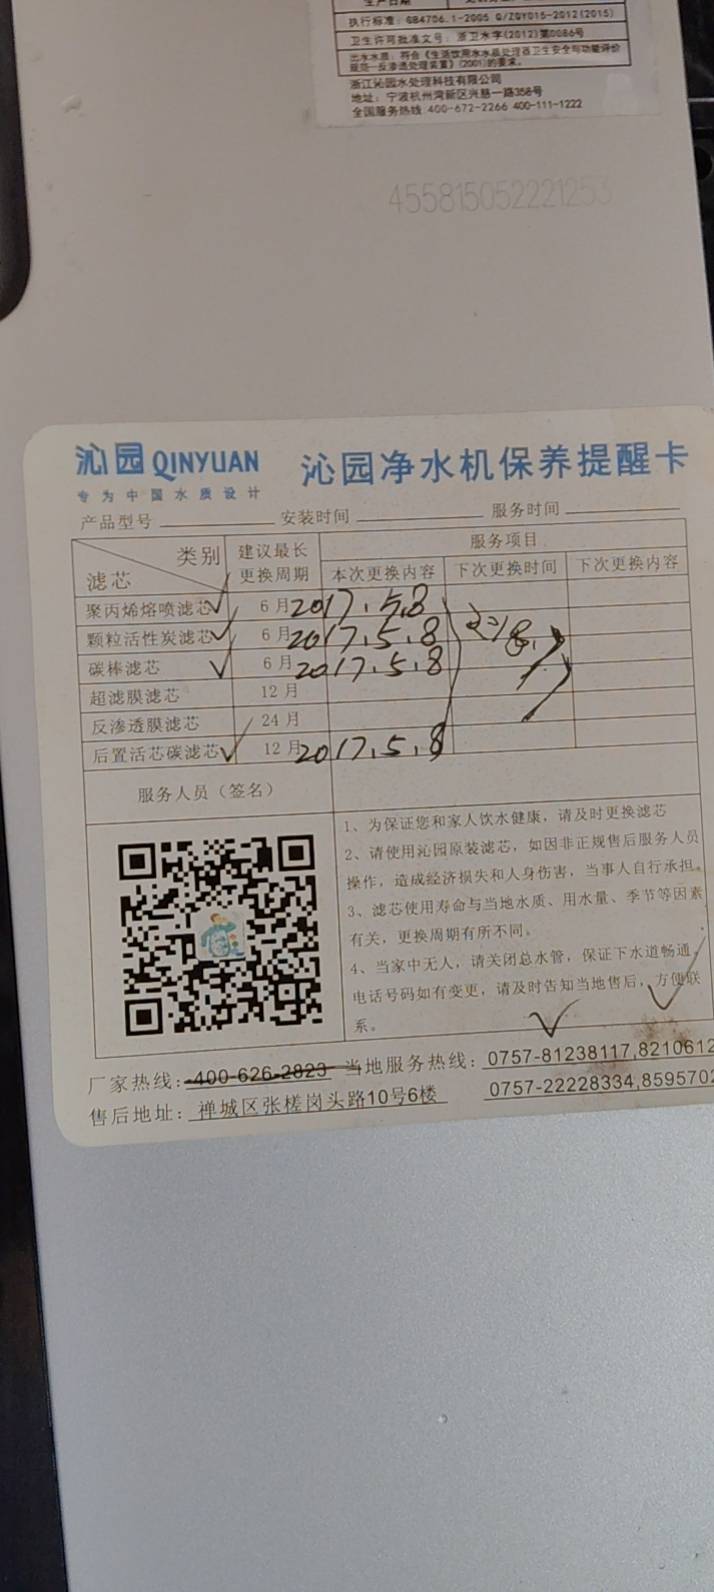 执行标准：GB4706.1-2005 Q/ZQY015-2012(2015)
卫生许可批准文号：浙卫水字(2012)第0086号
出水水质：符合《生活饮用水水质处理器卫生安全与功能评价
规范—反渗透处理装置》(2001)的要求。
浙江沁园水处理科技有限公司
地址：宁波杭州湾新区兴慈一路358号
全国服务热线 400-672-2266 400-111-1222
455815052221253
沁园 QINYUAN 沁园净水机保养提醒卡
专为中国水质设计
产品型号 安装时间 服务时间
类别 滤芯 建议最长更换周期 服务项目
本次更换内容 下次更换时间 下次更换内容
聚丙烯熔喷滤芯 6月 2017.5.8
颗粒活性炭滤芯 6月 2017.5.8
碳棒滤芯 6月 2017.5.8
超滤膜滤芯 12月
反渗透膜滤芯 24月
后置活芯碳滤芯 12月 2017.5.8
服务人员（签名）
1、为保证您和家人饮水健康，请及时更换滤芯
2、请使用沁园原装滤芯，如因非正规售后服务人员
操作，造成经济损失和人身伤害，当事人自行承担。
3、滤芯使用寿命与当地水质、用水量、季节等因素
有关，更换周期有所不同。
4、当家中无人，请关闭总水管，保证下水道畅通，
电话号码如有变更，请及时告知当地售后，方便联
系。
厂家热线：400-626-2823 当地服务热线：0757-81238117,8210612
售后地址：禅城区张槎岗头路10号6楼 0757-22228334,8595702